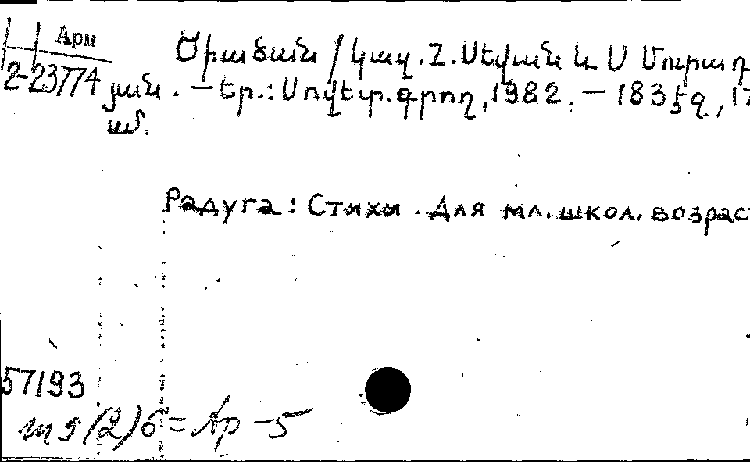 Арм
2-23774
Ծիածան / կազ. Հ. Սեվան և Ս Մուրադ
յան. — Եր.: Սովետ. գրող, 1982. — 183 էջ, 17
սմ.
Радуга : Стихи . Для мл. школ. возрас
57193
Ш9(2)6 = Ар -5